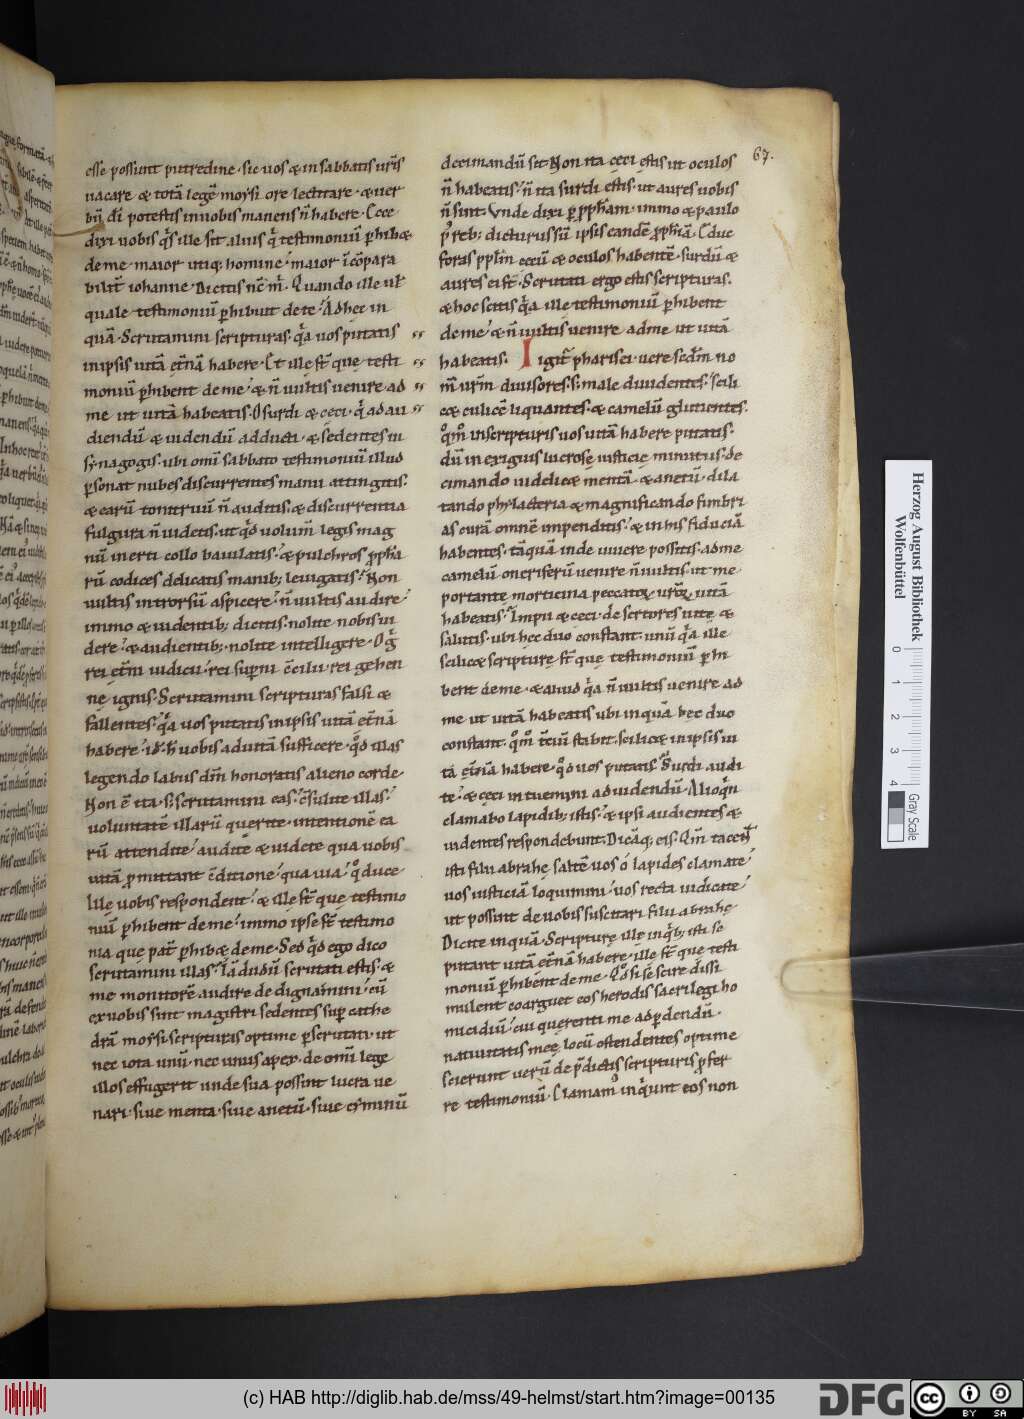 67.
esse possunt putredine · sic uos & in sabbatis urīs
uacare & totā legē moysi ore lectitare · & uer
bū dī potestis in uobis manens n̄ habere · Ecce
dixi uobis qꝫ ille sit alius q̄ testimoniū ꝑhib&
de me · maior utiq; homine · maior īcōpara
bilit̄ iohanne · Dicitis nc̄ m̄ · Quando ille ut̄
quale testimoniū ꝑhibuit de te · Adhec in
quā · Scrutamini scripturas · q̄a uos putatis
in ipsis uitā et̄nā habere · Et ille st̄ que testi
moniū ꝑhibent de me · & n̄ uultis uenire ad
me ut uitā habeatis · O surdi & ceci · q̄ ad au
diendū & uidendū adducti · & sedentes in
synagogis · ubi omī sabbato testimoniū illud
ꝑsonat nubes discurrentes manu attingitis ·
& earū tonitruū n̄ auditis · & discurrentia
fulgura n̄ uidetis · ut qd̄ volum̄ legis mag
nū inerti collo baiulatis · & pulchros ꝓpha
rū codices delicatis manib; leuigatis · Non
uultis introrsū aspicere · n̄ uultis audire ·
immo & uidentib; dicitis · nolite nobis ui
dere · & audientib; · nolite intelligere · O q̄
rei et̄ni iudicii · rei supni cc̄ilii · rei gehen
ne ignis · Scrutamini scripturas falsi &
fallentes · q̄a uos putatis in ipsis uitā et̄nā
habere · id · h̄ uobis ad uitā sufficere · qd̄ illas
legendo labiis dm̄ honoratis alieno corde ·
Non ē ita · s; scrutamini eas · cōsulite illas ·
uoluntatē illarū querite · intentionē ea
rū attendite · audite & uidete qua uobis
uitā ꝓmittant cōditione · qua uia · qͦ duce ·
Ille uobis respondent · & ille st̄ que testimo
niū ꝑhibent de me · immo ipse st̄ testimo
nia que pat̄ ꝑhib& de me · Sed qd̄ ego dico
scrutamini illas · Iā dudū scrutati estis · &
me monitorē audire dedignamini · cū
ex uobis sint magistri sedentes sup cathe
drā moysi · scripturas optime ꝑscrutati · ut
nec iota unū · nec unus apex · de omī lege
illos effugerit unde sua possint lucra ue
nari · siue menta · siue anetū · siue cyminū
decimandū sit · Non ita ceci estis ut oculos
n̄ habeatis · n̄ ita surdi estis · ut aures uobis
n̄ sint · Vnde dixi ꝑ ꝓpham · immo & paulo
pͦ reb; dicturus sū ipsis eandē ꝓphiā · Educ
foras pplm̄ cecū & oculos habentē · surdū &
aures ei st̄ · Scrutati ergo estis scripturas ·
& hoc scitis q̄a ille testimoniū ꝑhibent
de me · & n̄ uultis uenire ad me ut uitā
habeatis · Igit̄ pharisei uere scdm̄ no
m̄ urm̄ diuisores · s; male diuidentes · scili
c& culicē liquantes · & camelū glutientes ·
qͦmͦ in scripturis uos uitā habere putatis ·
dū in exiguis lucrose iusticie minutiis · de
cimando uidelic& mentā · & anetū · dila
tando phylacteria & magnificando fimbri
as curā omnē impenditis · & in his fiduciā
habentes · tāquā inde uiuere possitis · ad me
camelū oneriferū uenire n̄ uultis · ut me
portante morticina peccatoꝝ uroꝝ uitā
habeatis · Impii & ceci · desertores uite &
salutis · ubi hec duo constant · unū q̄a ille
scilic& scripture st̄ que testimoniū ꝑhi
bent de me · & aliud q̄a n̄ uultis uenire ad
me ut uitā habeatis ubi inquā hec duo
constant · qͦmͦ tc̄iū stabit · scilic& in ipsis ui
tā et̄nā habere · qd̄ uos putatis · Surdi audi
te · & ceci intuemini ad uidendū · Alioqn̄
clamabo lapidib; istis · & ipsi audientes &
uidentes respondebunt · Dicāq; eis · Qm̄ tacent
isti filii abrahe saltē uos o lapides clamate ·
uos iusticiā loquimini · uos recta iudicate ·
ut possint de uobis suscitari filii abrahe ·
Dicite inquā · Scripture ille in qb; isti se
putant uitā et̄nā habere · ille st̄ que testi
moniū ꝑhibent de me · Qͦsi se scire dissi
mulent coarguet eos herodis sacrilegi ho
micidiū · cui querenti me ad ꝑdendū ·
natiuitatis mee locū ostendentes optime
scierunt uerū de p̄dictis scripturis ꝓfer
re testimoniū · Clamamͫ inqͥunt eos non
Herzog August Bibliothek
Wolfenbüttel
0 1 2 3 4
Gray Scale
(c) HAB http://diglib.hab.de/mss/49-helmst/start.htm?image=00135
DFG
cc BY SA